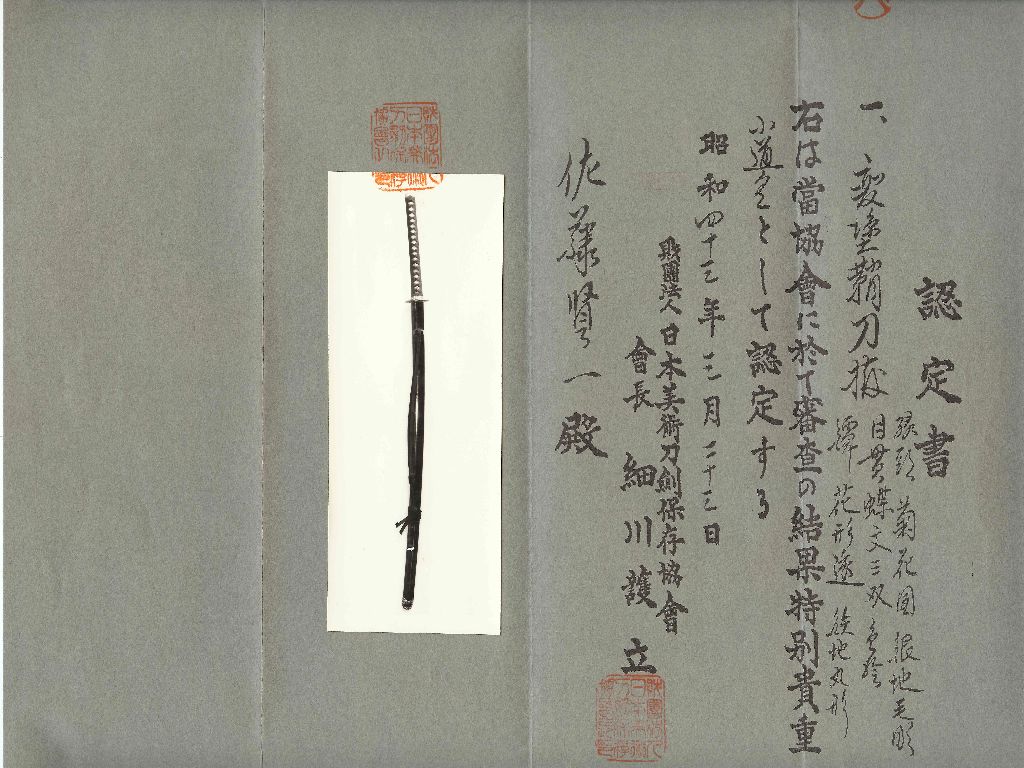 認定書
一、変塗鞘刀拵
縁頭 菊花図 銀地毛彫
目貫 蝶文三双 色絵
鐔 花形透 鉄地丸形
右は當協會に於て審査の結果特別貴重
小道具として認定する
昭和四十三年三月二十三日
財團法人日本美術刀劍保存協會
會長 細川護立
佐藤賢一殿